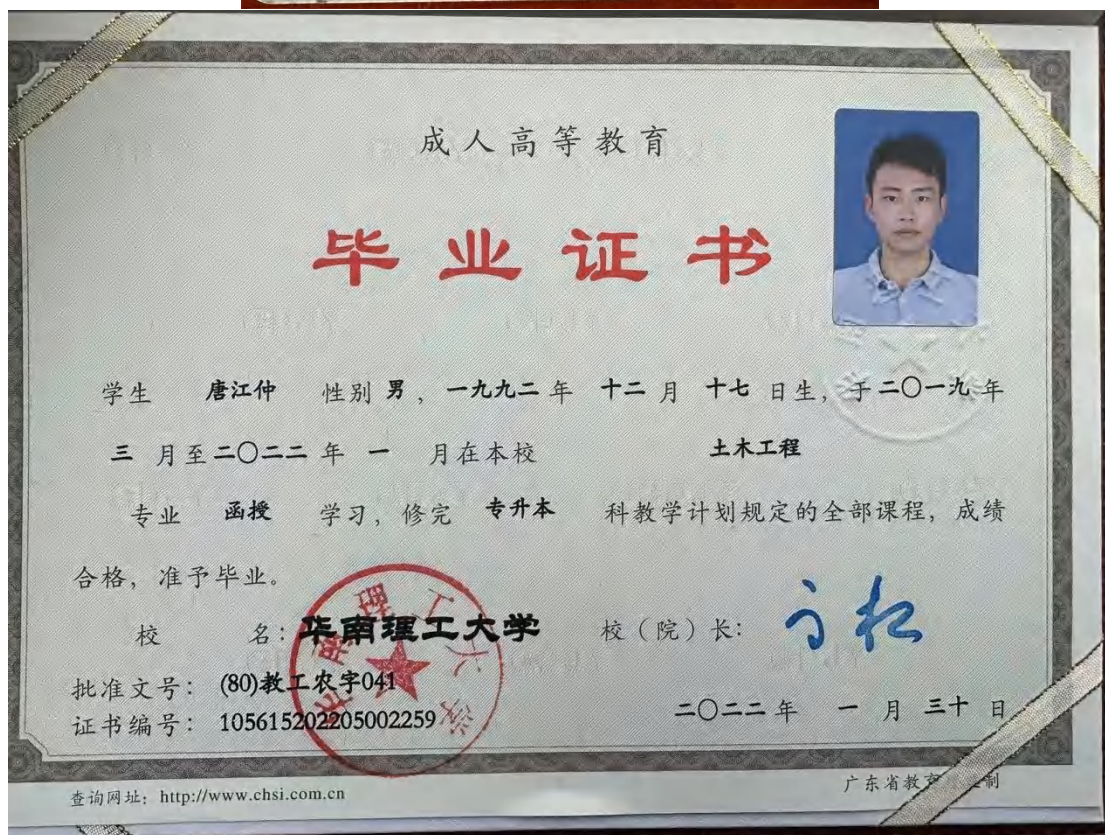 成人高等教育
毕业证书
学生 唐江仲 性别 男，一九九二 年 十二 月 十七 日生，于 二〇一九 年
三 月至 二〇二二 年 一 月在本校 土木工程
专业 函授 学习，修完 专升本 科教学计划规定的全部课程，成绩
合格，准予毕业。
校 名：华南理工大学 校（院）长：
华南理工大学
批准文号：(80)教工农字041
证书编号：105615202205002259 二〇二二 年 一 月 三十 日
查询网址：http://www.chsi.com.cn 广东省教 制